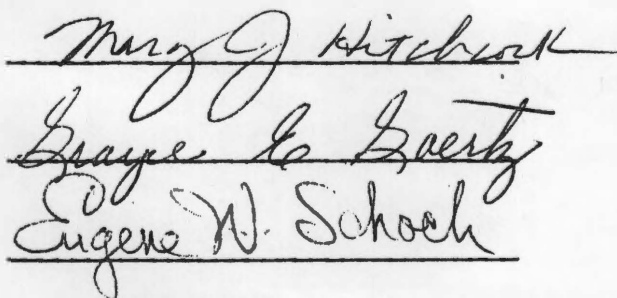 Mary J Hitchcock
Grayce E Goertz
Eugene W. Schoch